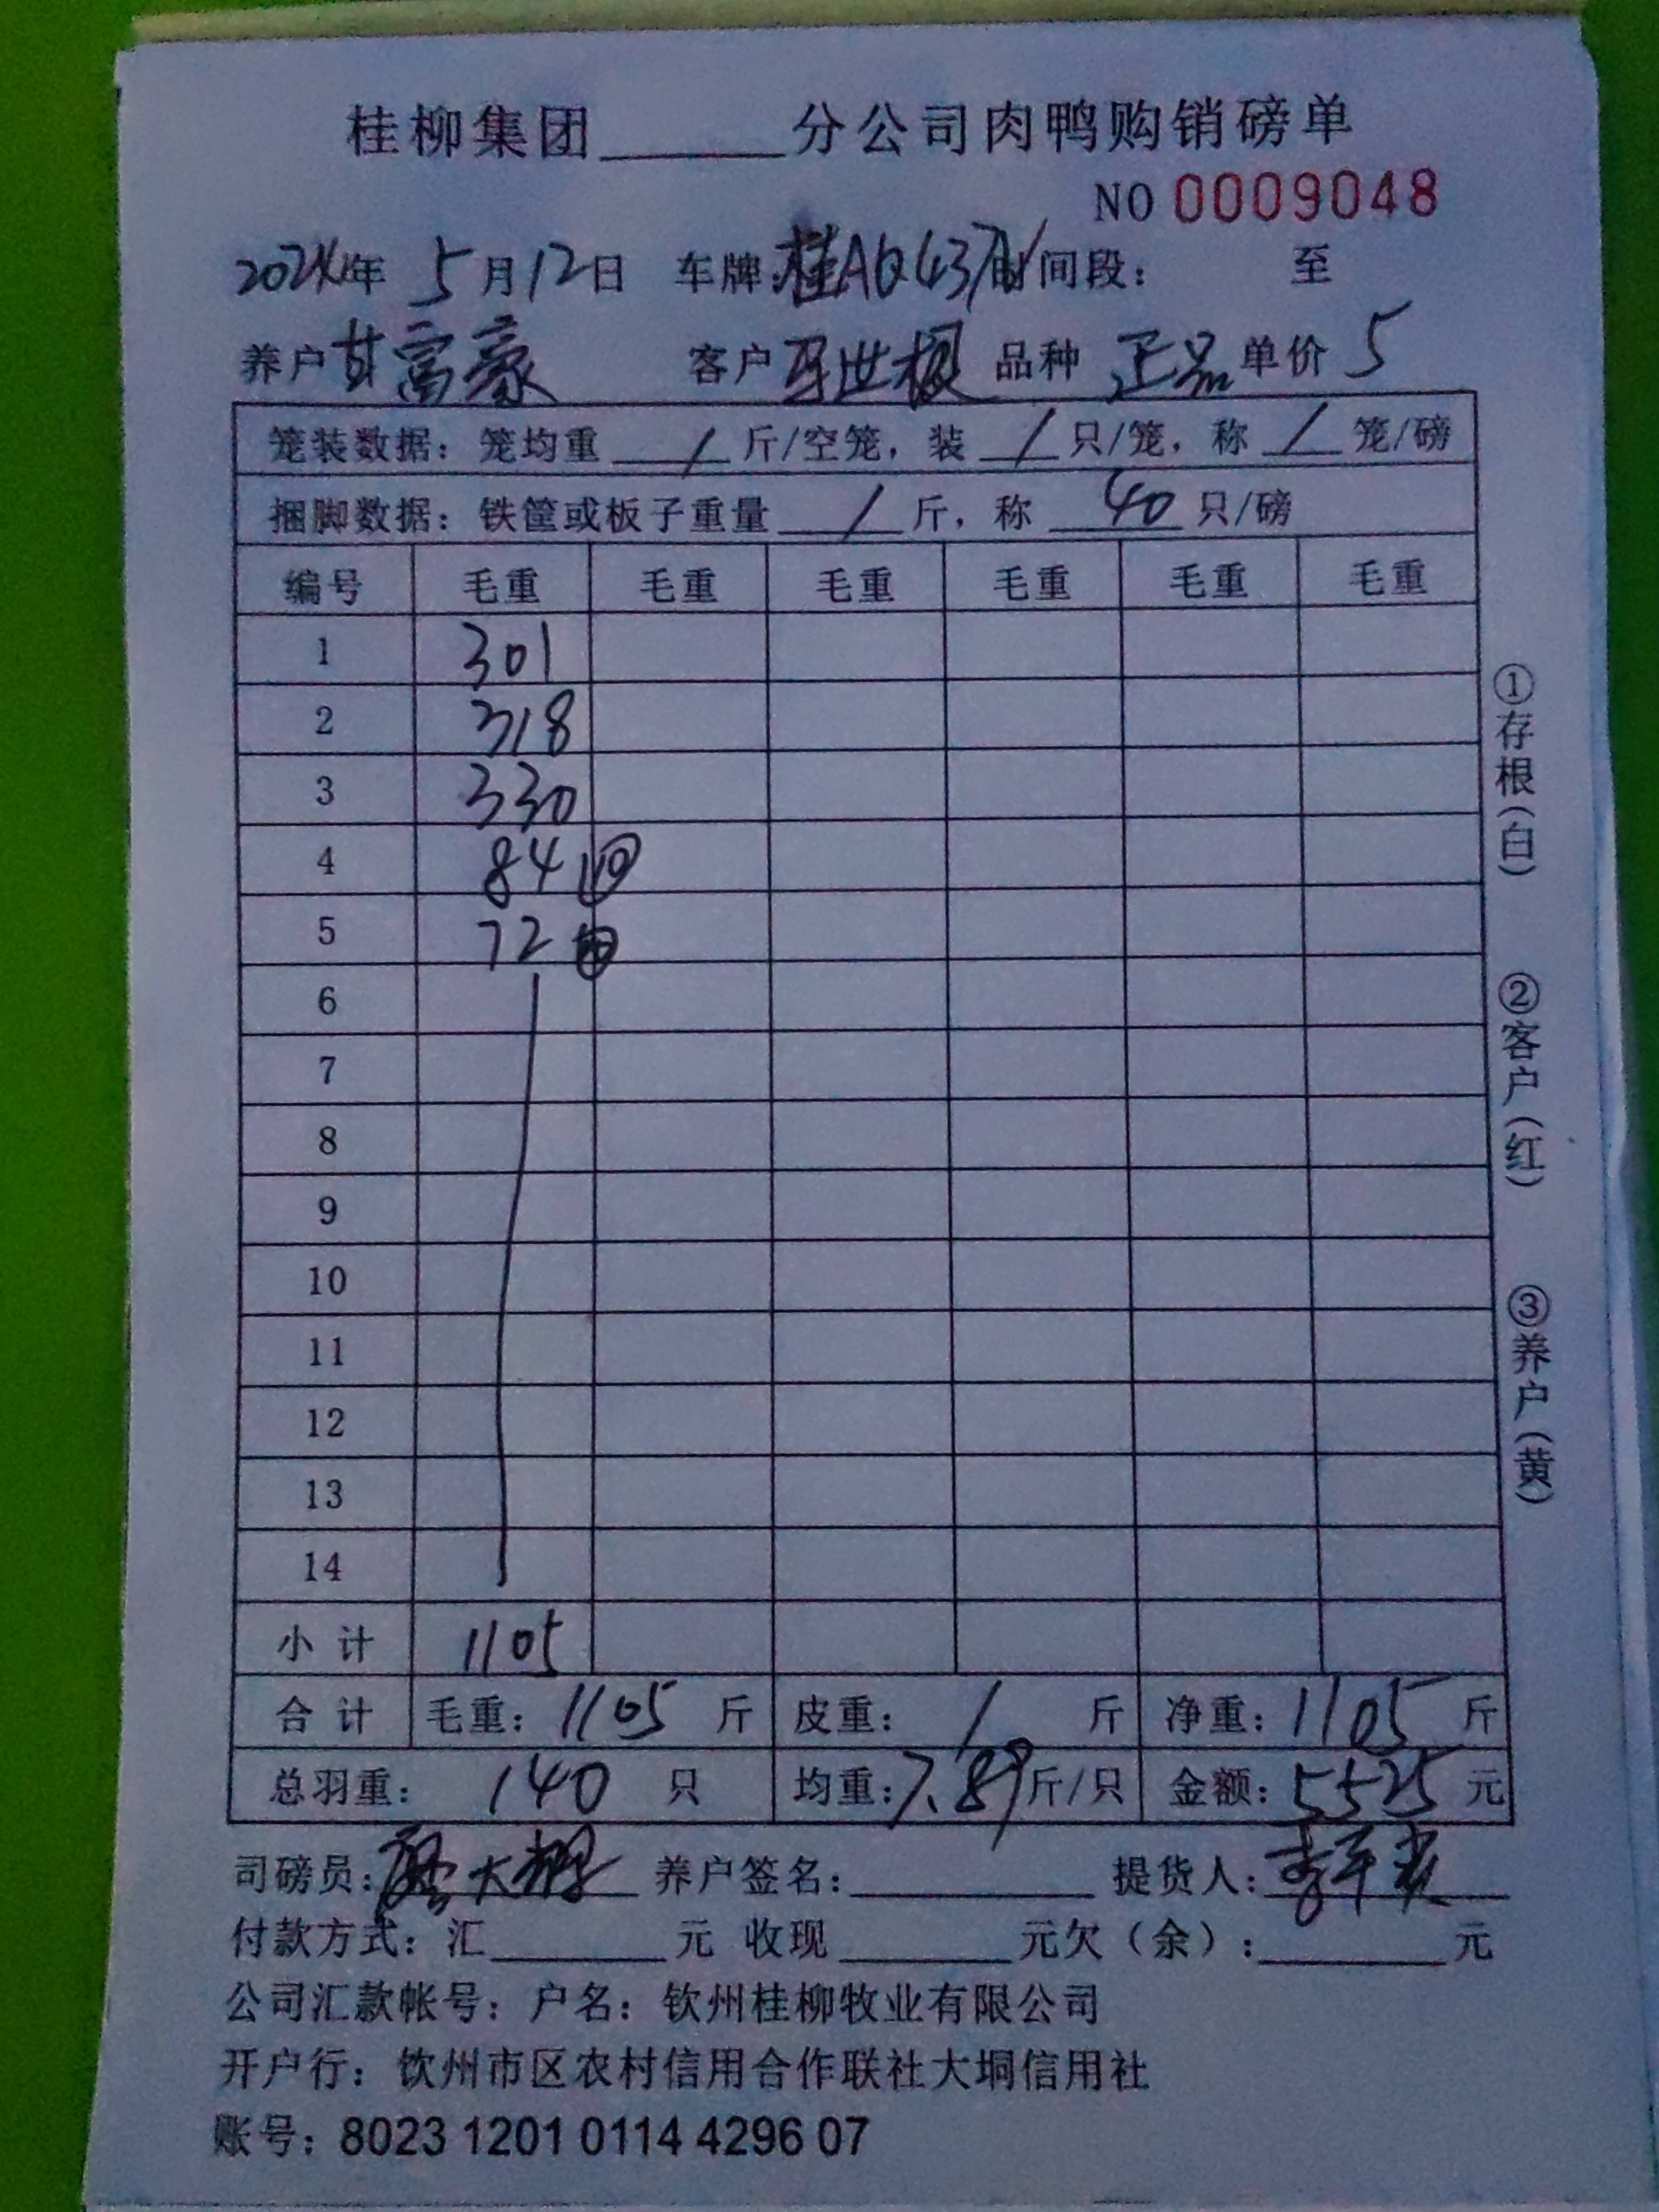 桂柳集团______分公司肉鸭购销磅单
NO 0009048
2024年 5月12日 车牌:桂A 时间段: 至
养户 甘富豪 客户 品种 正品 单价 5
笼装数据:笼均重 / 斤/空笼,装 / 只/笼,称 / 笼/磅
捆脚数据:铁筐或板子重量 / 斤,称 40 只/磅
编号 毛重 毛重 毛重 毛重 毛重 毛重
1 301
2 318
3 330
4 84 ⑩
5 72
6
7
8
9
10
11
12
13
14
小计 1105
合计 毛重:1105 斤 皮重: / 斤 净重:1105 斤
总羽重: 140 只 均重:7.89斤/只 金额:5525元
司磅员: 养户签名:______ 提货人:
付款方式:汇______元 收现______元欠(余):______元
公司汇款帐号:户名:钦州桂柳牧业有限公司
开户行:钦州市区农村信用合作联社大垌信用社
账号:8023 1201 0114 4296 07
①存根(白) ②客户(红) ③养户(黄)